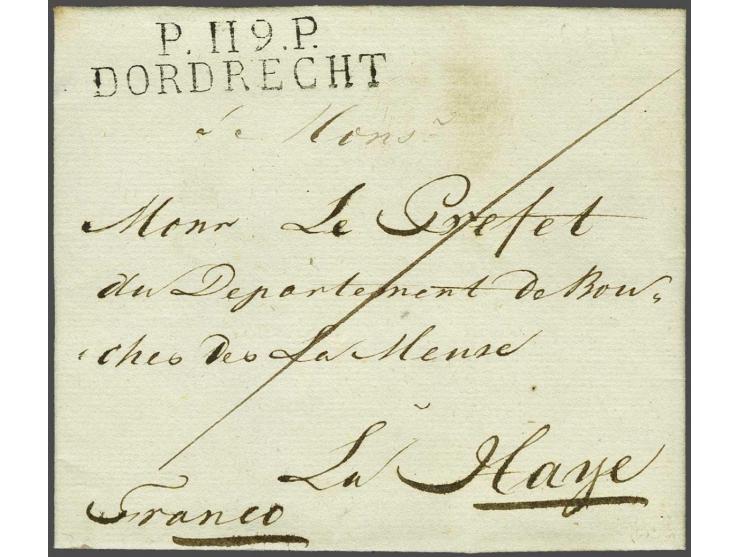 P. 119. P.
DORDRECHT
Monr Le Prefet
du Departement de Bou-
ches des La Meuse
La Haye
Franco